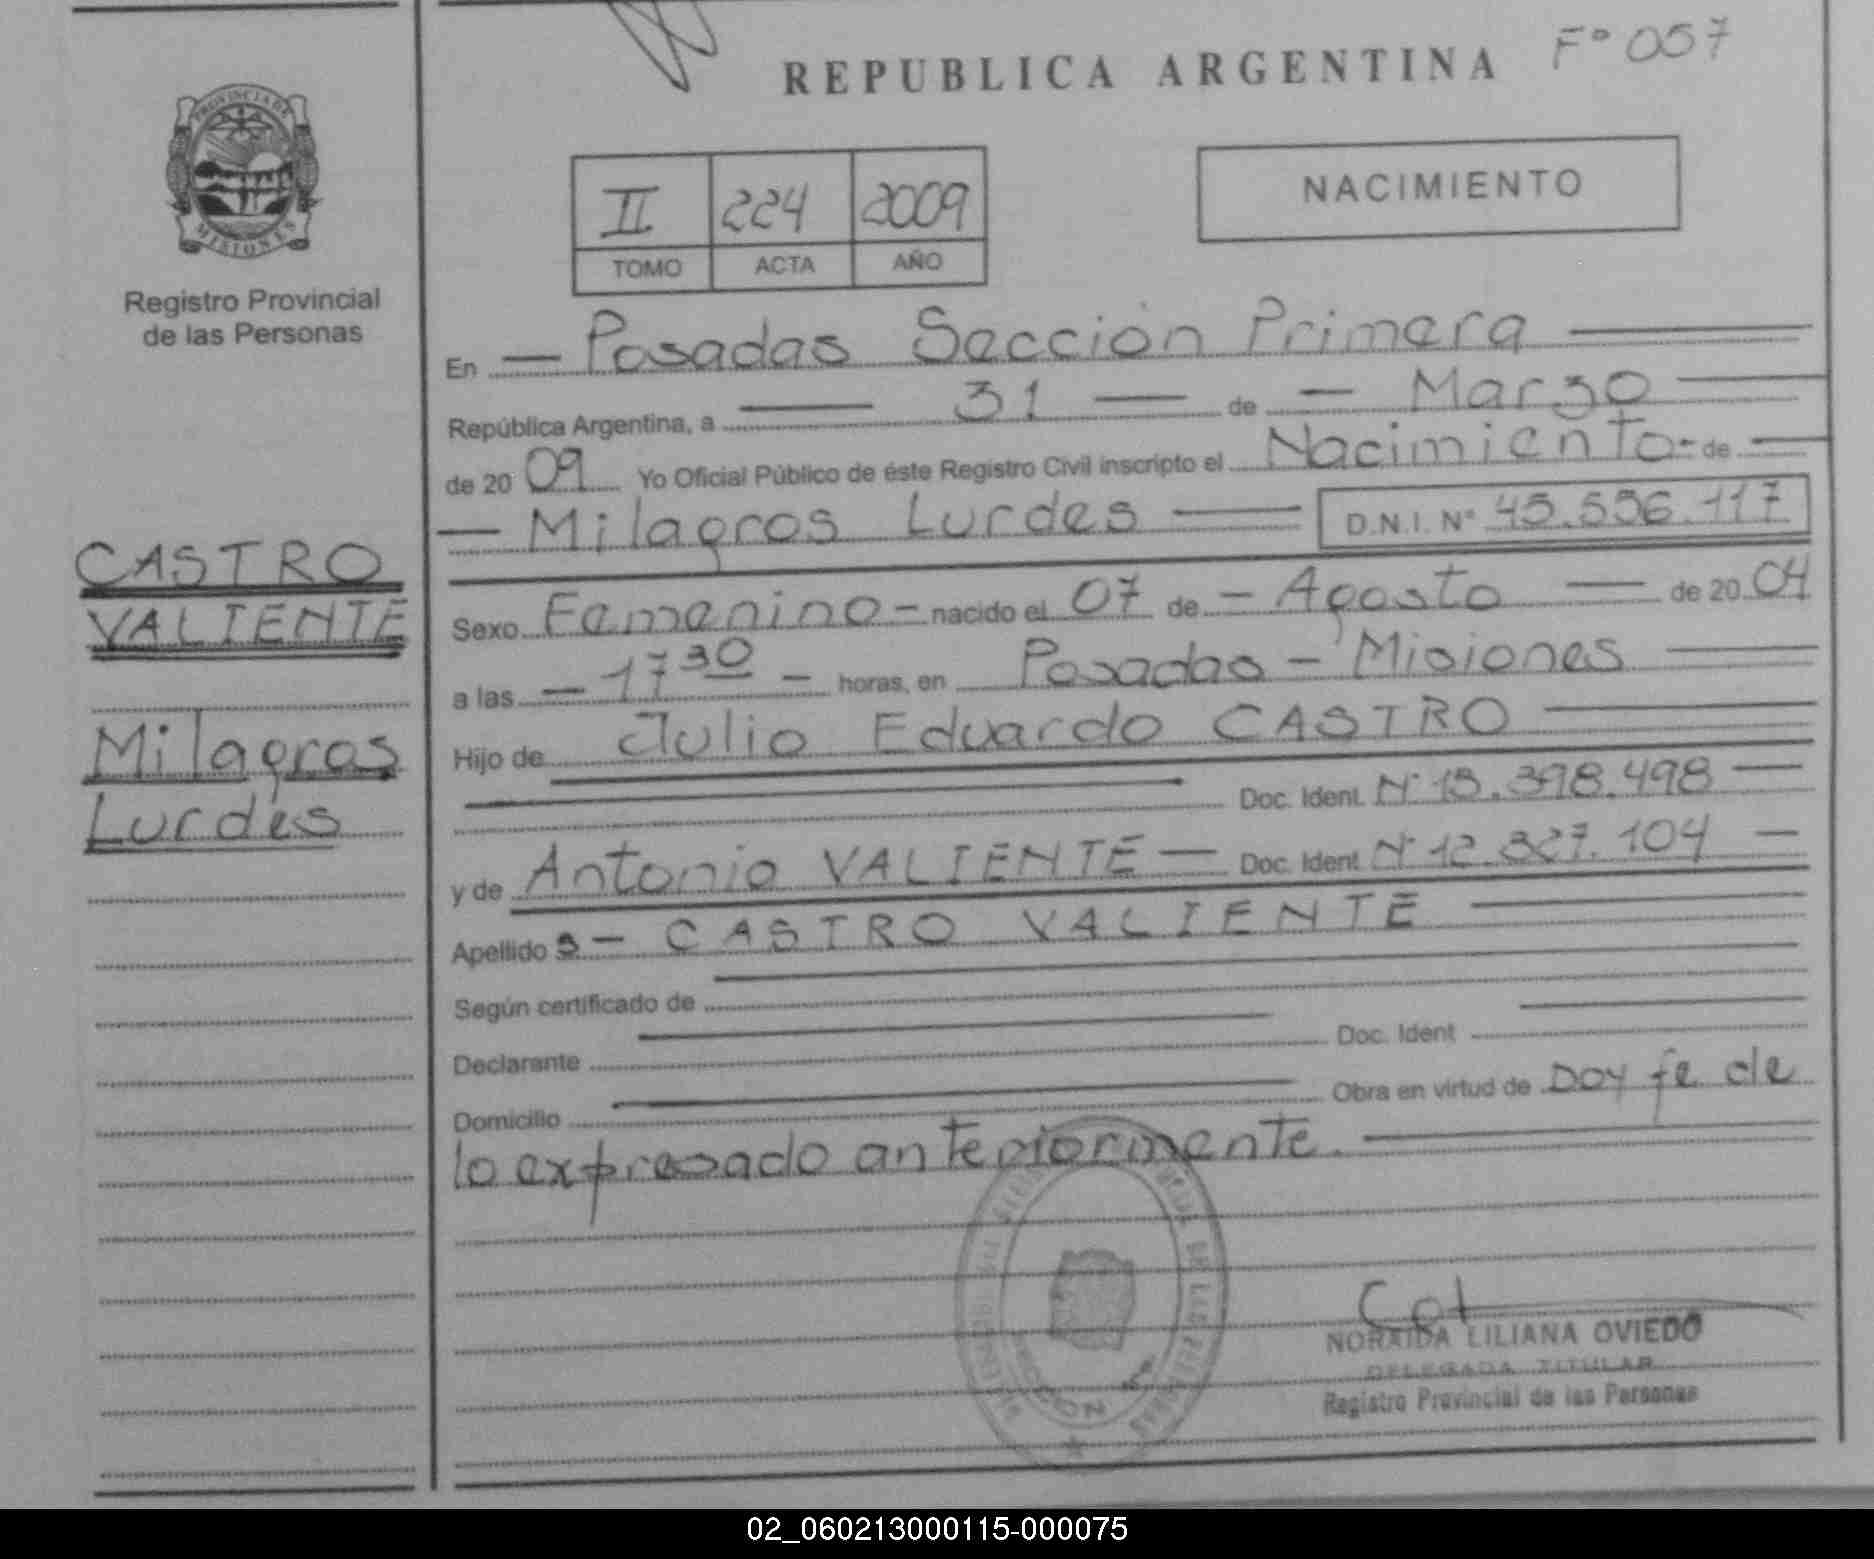 F° 057
REPUBLICA ARGENTINA
PROVINCIA DE
MISIONES
Registro Provincial
de las Personas
II 224 2009
TOMO ACTA AÑO
NACIMIENTO
CASTRO
VALIENTE
Milagros
Lurdes
En — Posadas Sección Primera —
República Argentina, a — 31 — de — Marzo —
de 20 09 Yo Oficial Público de éste Registro Civil inscripto el Nacimiento - de —
— Milagros Lurdes — D.N.I. N° 45.556.117
Sexo Femenino - nacido el 07 de - Agosto — de 20 04
a las — 17 30 — horas, en Posadas - Misiones —
Hijo de Julio Eduardo CASTRO —
Doc. Ident. N° 13.398.498 —
y de Antonio VALIENTE — Doc. Ident. N° 12.327.104 —
Apellido s - CASTRO VALIENTE —
Según certificado de
Declarante Doc. Ident
Domicilio Obra en virtud de Doy fe de
lo expresado anteriormente. —
NORAIDA LILIANA OVIEDO
DELEGADA TITULAR
Registro Provincial de las Personas
02_060213000115-000075